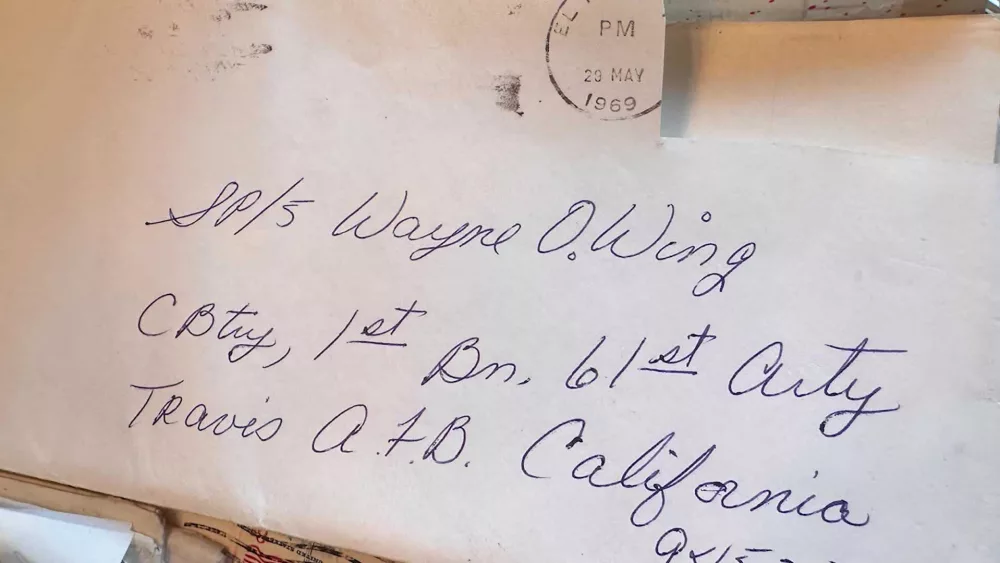 EL
PM
29 MAY
1969
SP/5 Wayne O. Wing
C Btry, 1st Bn. 61st Arty
Travis A.F.B. California
UNITED STATES